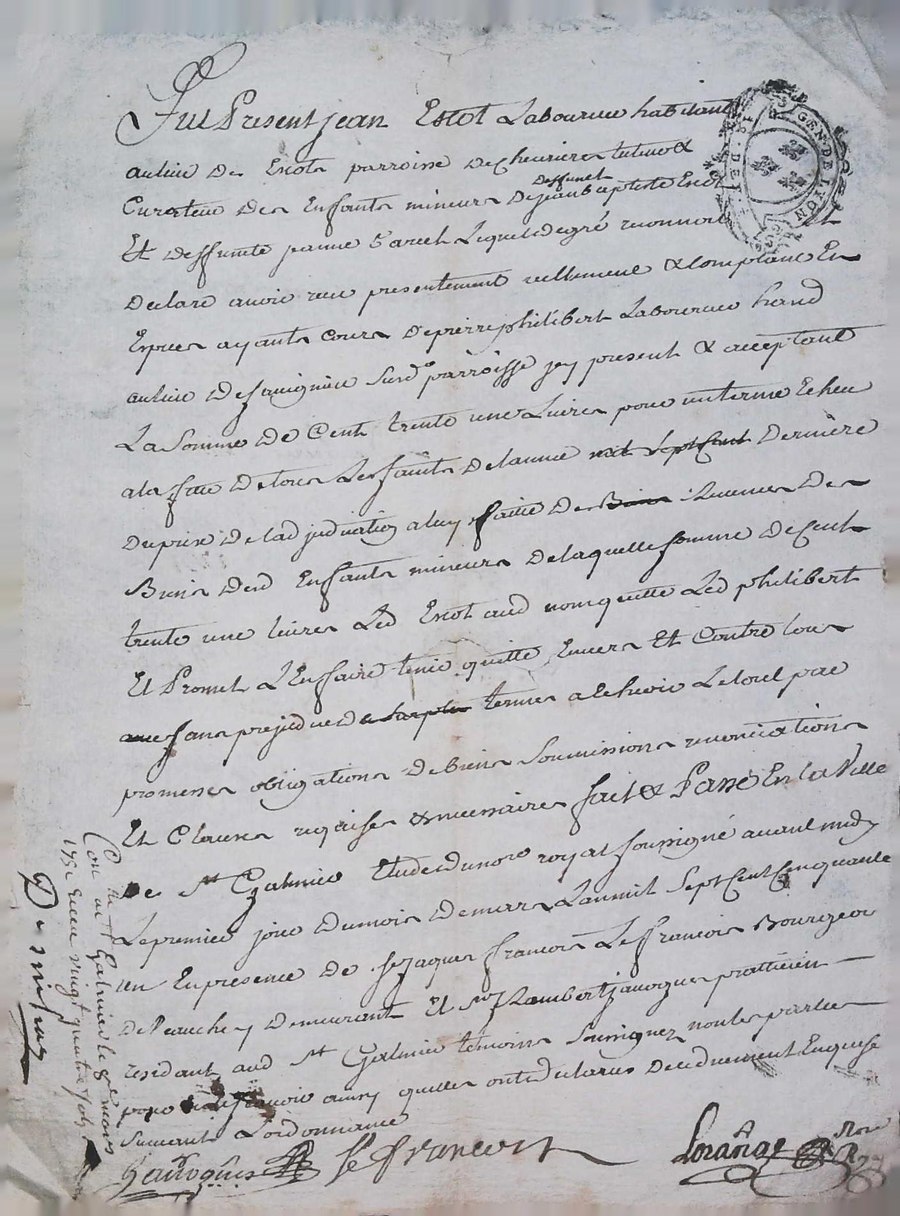 Fut Present jean Escot Laboureur habitant
au lieu Des Escots parroisse De chevrieres tuteur &
Curateur Des Enfants mineurs De deffunct jean baptiste Escot
Et deffunte jeanne Lequel de gré reconnoit Et
Declare avoir receu presentement reellement & Comptant En
Especes ayants Cours De pierre philibert Laboureur
au lieu De sur de parroisse jcy present & acceptant
La Somme De Cent trente une Livres pour un terme Echeu
a la feste De tous Les saints De l'annee Derniere
Du prix De l'adjudication a luy faitte Des Des
Biens Desd Enfants mineurs De laquelle somme De Cent
trente une livres Led Escot aud nom quitte Led philibert
Et Promet L'En faire tenir quitte Envers Et Contre tous
sans prejudice De termes a Echeoir Le tout par
promesses obligations De biens Soumissions renonciations
Et Clauses requises & necessaires fait & Passé En la Ville
De St Galmier Etude du nore royal soussigné avant midy
Le premier jour Du mois De mars L'an mil Sept Cent Cinquante
un En presence De sr Jaques francois Le francois Bourgeois
De Demeurant Et Sr Rambert javogues pratticien
residant aud St Galmier temoins Soussignez non les parties
pour ne le scavoir ainsy qu'elles ont declarés De ce duement Enquise
Suivants L'ordonnance
Javogues Le francois Lorange Nore Roy
GEN. DE LYON
Con le St Galmier le 8e mars
1751 Receu vingt quatre sols